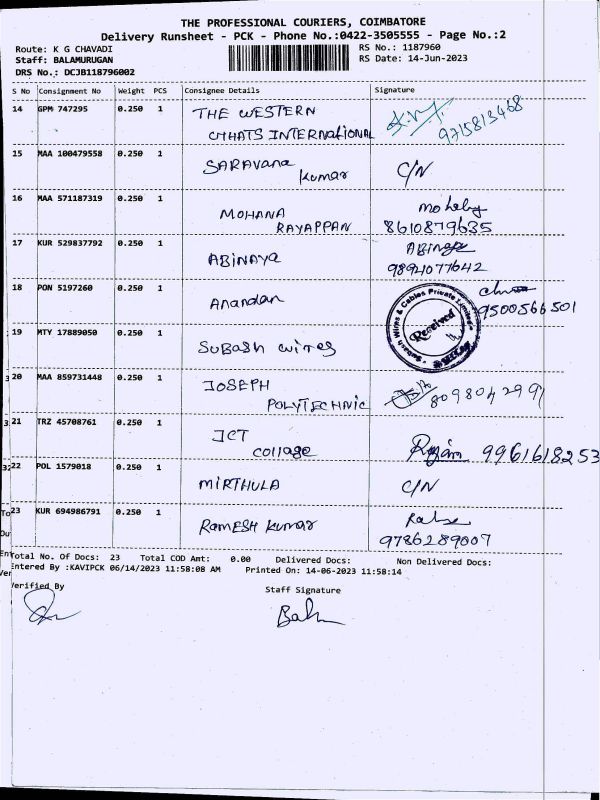 THE PROFESSIONAL COURIERS, COIMBATORE
Delivery Runsheet - PCK - Phone No.:0422-3505555 - Page No.:2
Route: K G CHAVADI RS No.: 1187960
Staff: BALAMURUGAN RS Date: 14-Jun-2023
DRS No.: DCJB118796002
S No Consignment No Weight PCS Consignee Details Signature
14 GPM 747295 0.250 1 THE WESTERN
GHHATS INTERNATIONAL 9715813468
15 MAA 100479558 0.250 1 SARAVANA
Kumar C/N
16 MAA 571187319 0.250 1 MOHANA
RAYAPPAN 8610879635
17 KUR 529837792 0.250 1 ABINAYA Abinaya
9894077642
18 PON 5197260 0.250 1 Anandan 9500566501
Subash Wires & Cables Private Limited
Received
19 MTY 17889050 0.250 1 SUBASH wires
20 MAA 859731448 0.250 1 JOSEPH
POLYTECHNIC 8098042991
21 TRZ 45708761 0.250 1 JCT
collage 9961618253
22 POL 1579018 0.250 1 MIRTHULA C/N
23 KUR 694986791 0.250 1 RAMESH Kumar
9786289007
Total No. Of Docs: 23 Total COD Amt: 0.00 Delivered Docs: Non Delivered Docs:
Entered By :KAVIPCK 06/14/2023 11:58:08 AM Printed On: 14-06-2023 11:58:14
Verified By Staff Signature